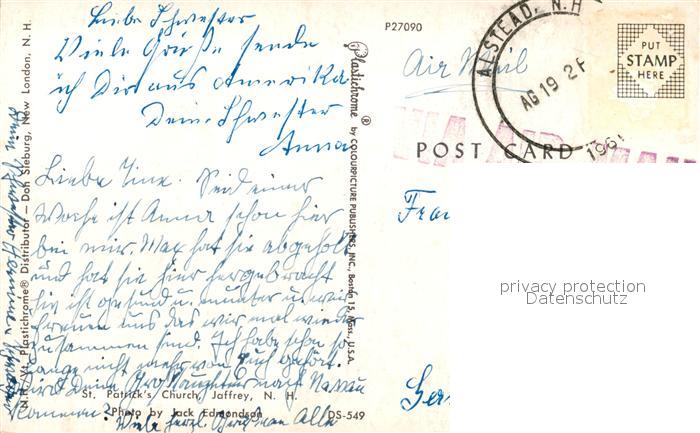 Liebe Schwester
Viele Grüße sende
ich Dir aus Amerika
Deine Schwester
Anna
Liebe Tine. Seid einer
Woche ist Anna schon hier
bei mir. Max hat sie abgeholt
und hat sie hier hergebracht
sie ist gesund u. munter u. wir
freuen uns das wir mal wieder
zusammen sind. Ich habe schon so
lange nicht mehr von Euch gehört.
Wird Deine nach Nassau
kommen?
Viele herzl. Grüße an Alle
N.H., Vt. Plastichrome® Distributor — Don Sieburg, New London, N. H.
St. Patrick's Church, Jaffrey, N. H.
Photo by Jack Edmondson
DS-549
Plastichrome ® by COLOURPICTURE PUBLISHERS, INC., Boston 15, Mass. U.S.A.
P27090
Air Mail
ALSTEAD, N.H
AG 19 2 P
196
PUT
STAMP
HERE
VIA AIR MAIL
POST CARD
Frau
privacy protection
Datenschutz
Ger